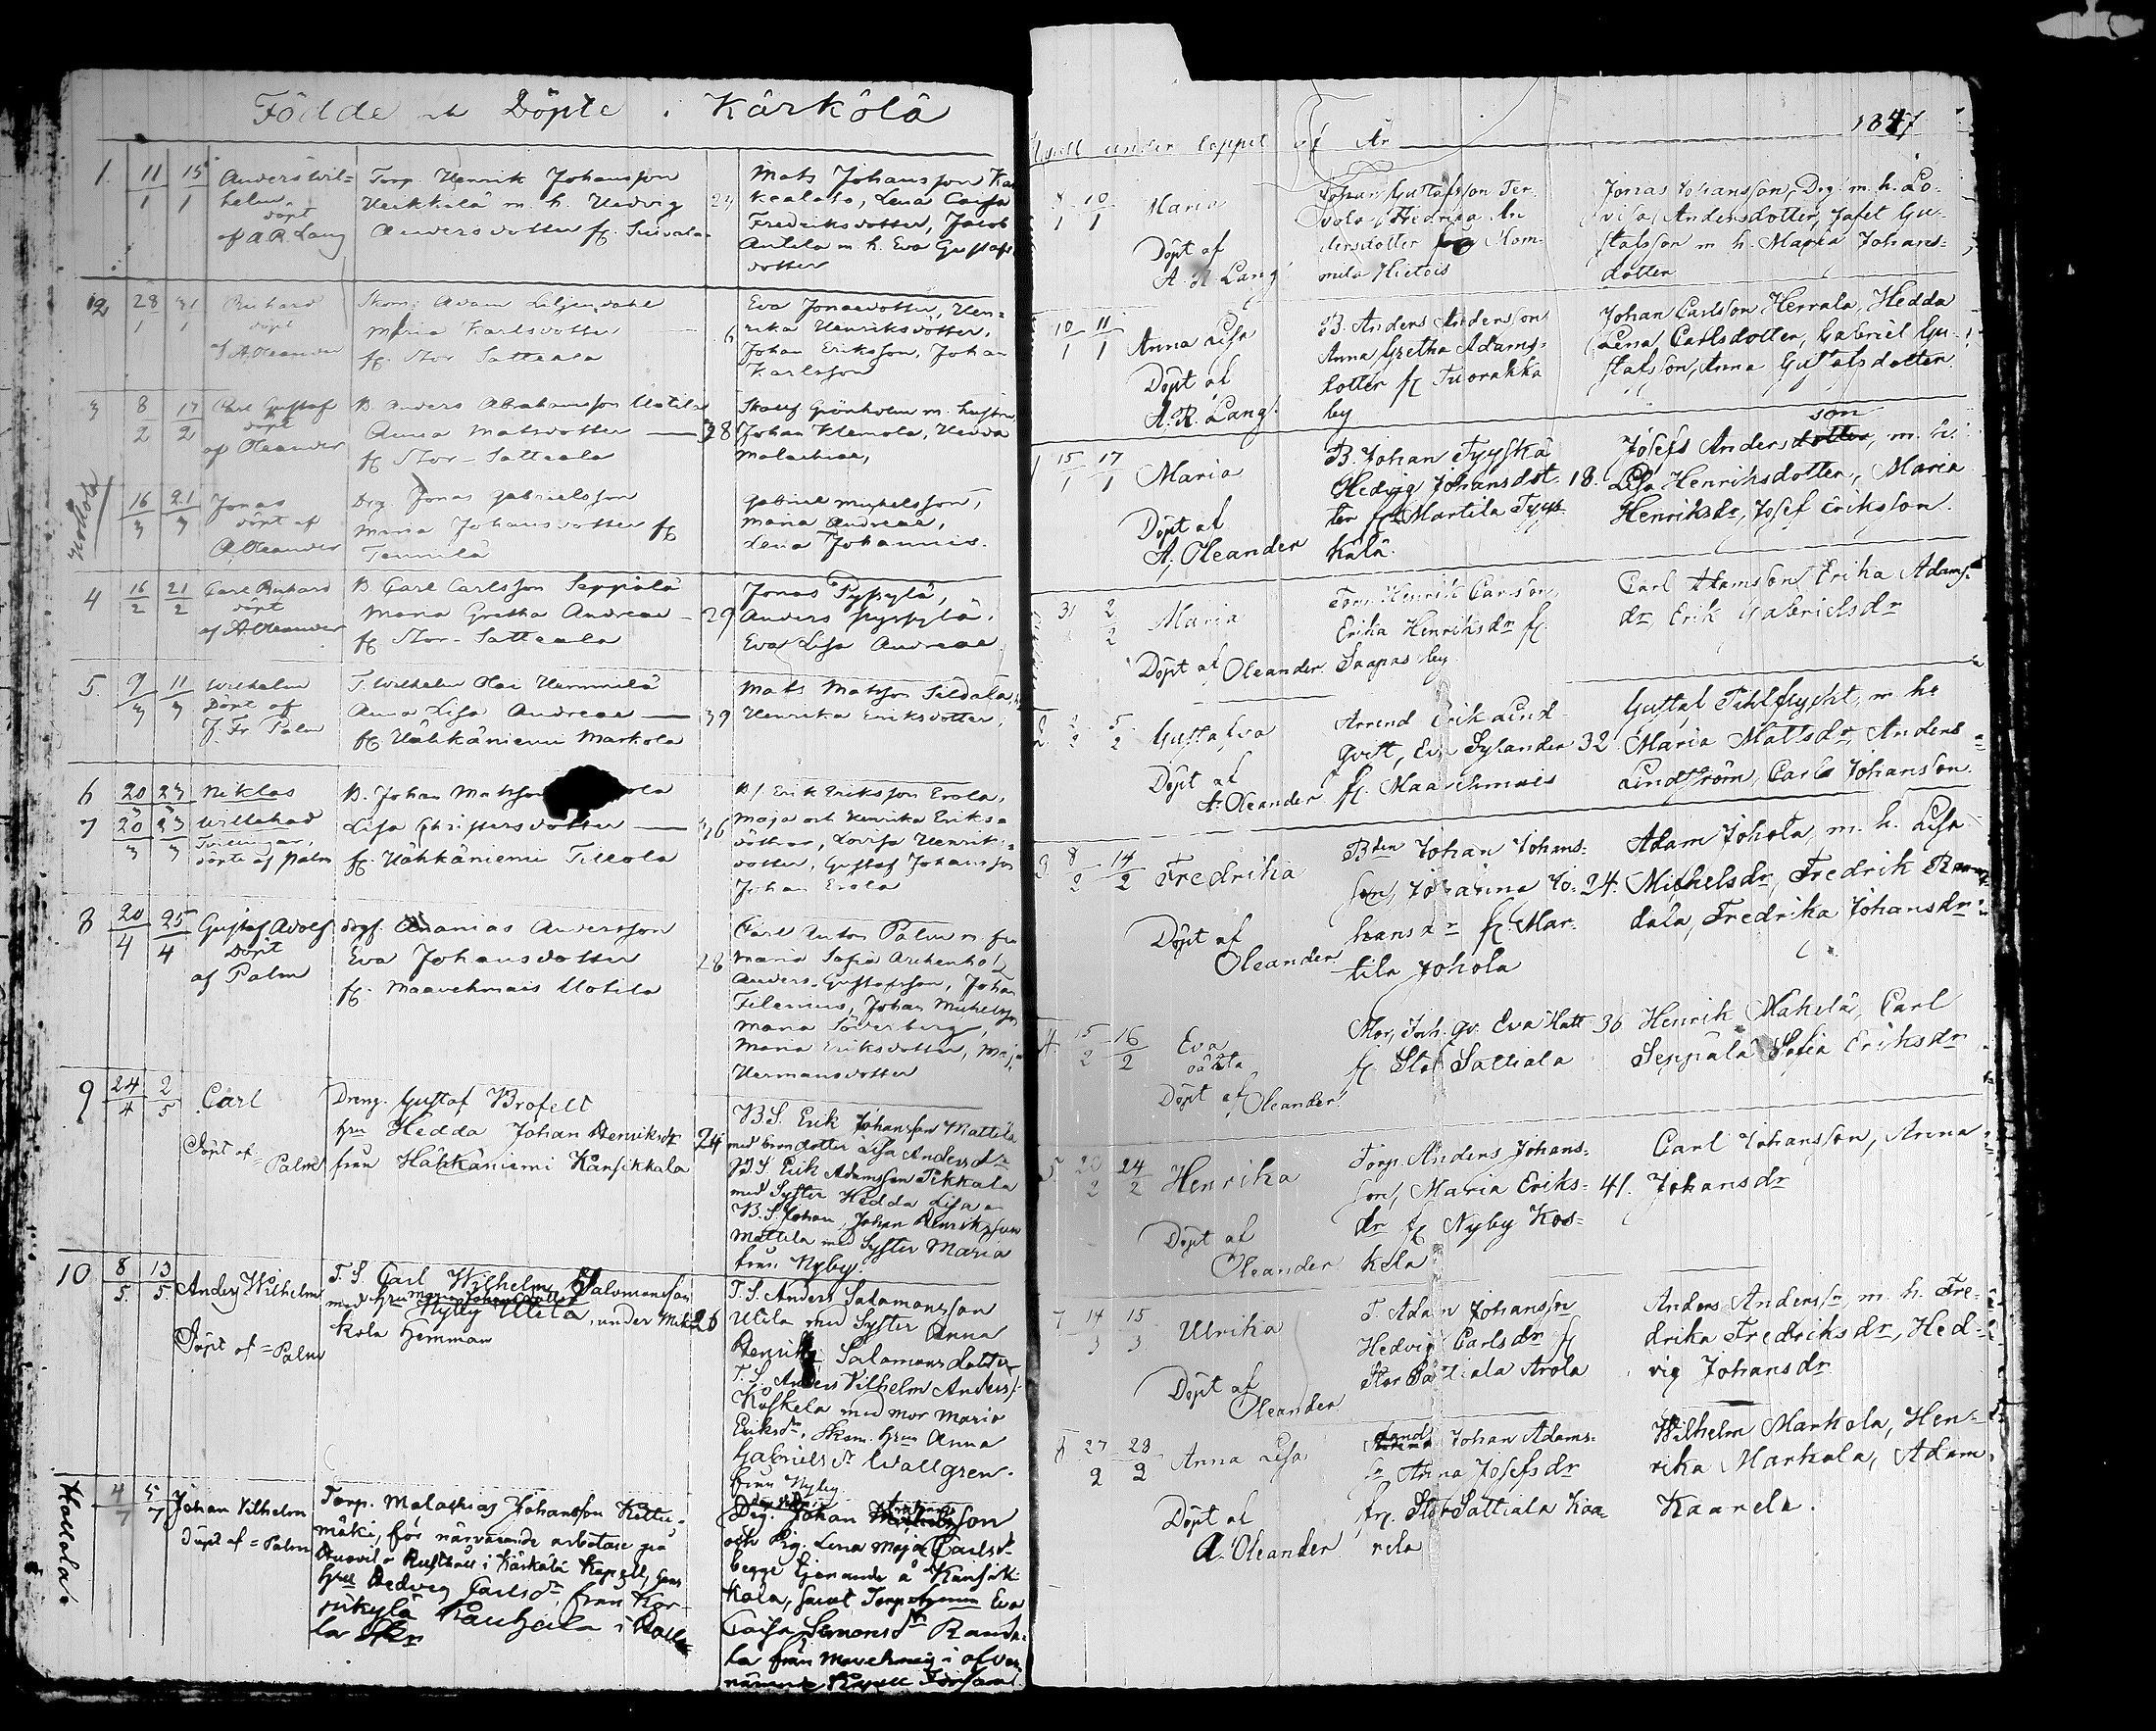 Födde och Döpte i Kårkölä
1 11/1 15/1 Anders Wil=
helm
döpt
af A. R. Lang
Torp. Henrik Johansson
Heikkilä m. h. Hedvig
Andersdotter fr.
Mats Johansson
Lena Caisa
Fredriksdotter, Jacob
Anttila m. h. Eva Gustafs
dotter
2 28/1 31/1 Richard
döpt
af A. Oleander
Skom. Adam Liljendahl
Maria Karlsdotter
fr. Stor Sattiala
6
Eva Jonaedotter, Hen=
rika Henriksdotter,
Johan Eriksson, Johan
Karlsson
3 8/2 17/2 Carl Gustaf
döpt
af Oleander
B. Anders Abrahamsson Uotila
Anna Matsdotter
fr. Stor-Sattiala
28
Grönholm m. hustru
Johan Klemola, Hedda
Malachiae,
16/3 21/3 Jonas
döpt af
A. Oleander
Drg. Jonas Gabrielsson
Maria Johansdotter fr
Tennilä
Gabriel Michelsson,
Maria Andreae,
Lena Johannis.
4 16/2 21/2 Carl Richard
döpt
af A. Oleander
B. Carl Carlsson Seppälä
Maria Gretha Andreae
fr. Stor-Sattiala
29
Jonas Pyssylä,
Anders Pyssylä,
Eva Lisa Andreae
5. 9/3 11/3 Wilhelm
Döpt af
J. Fr. Palm
T. Wilhelm Olai Hemmilä
Anna Lisa Andreae
fr. Hähkäniemi Markola
39
Mats Matsson
Henrika Eriksdotter,
6 20/3 23/3 Niklas
7 20/3 23/3 Willehad
Tvillingar,
döpte af Palm
B. Johan Matsson
Lisa Christersdotter
fr. Hähkäniemi Tillola
36
B/ Erik Eriksson Erola,
Maja och Henrika Eriks=
döttrar, Lovisa Henriks=
dotter, Gustaf Johansson
Johan Erola
8 20/4 25/4 Gustaf Adolf
Döpt
af Palm
drgf. Ananias Andersson
Eva Johansdotter
fr. Maavehmais Uotila
28
Carl Anton Palm m. fru
Maria Sofia Archenholz
Anders Gustafsson, Johan
Filenius, Johan Michelsson
Maria Söderberg,
Maria Eriksdotter, Maja
Hermansdotter
9 24/4 2/5 Carl
Döpt af=
Palm
Dreng. Gustaf Brofelt
hru Hedda Johan Henriksdr
från Hähkäniemi Kansikkala
24
B.S. Erik Johansson Mattila
med brordotter Lisa Andersdr
B.S. Erik Adamsson Pekkala
med Syster Hedda Lisa
B.S. Johan, Johan Henriksson
Mattila med Syster Maria
från Nyby.
10 8/5 13/5 Anders Wilhelm
Döpt af = Palm
T. S. Carl Wilhelm Salomonsson
med hru Maria Johansdotter
Nyby Utila, under
kola hemman
26
T. S. Anders Salamonsson
Utila med Syster Anna
Henrika Salamonsdotter
T. S. Anders Vilhelm Anderss.
Koskela med mor Maria
Eriksdr, Skom. hru Anna
Gabrielsdr Wallgren.
från Nyby.
Hollola
4/7 5/7 Johan Vilhelm
Döpt af = Palm
Torp. Malakias Johansson
mäki, för närvarande arbetare på
Rusthåll i Kärkölä Kapell, hans
hru Hedvig Carlsdr, från
i Hollo=
la Skn
Drg. Johan
och Pig. Lena Maja Carlsdr
begge tjenande å Kansik=
kala, samt Eva
Caisa Simonsdr
la från
Kapell Församl.
1847
Kapell under loppet af År
8/1 10/1 Maria
Döpt af
A. R. Lang
Johan Gustafsson Ter=
vola Fredrika An
dersdotter från Hom=
mila Hietois
Jonas Johansson, Drg. m. h. Lo=
visa Andersdotter, Jafet Gu=
stafsson m h. Maria Johans=
dotter
10/1 11/1 Anna Lisa
Döpt af
A. R. Lang.
B. Anders Anderson
Anna Gretha Adams=
dotter fr Tuorakka
by
Johan Carlsson Herrala, Hedda
Lena Carlsdotter, Gabriel Gu=
stafsson, Anna Gustafsdotter
15/1 17/1 Maria
Döpt af
A. Oleander
B. Johan Tyyskä
Hedvig Johansdot=
ter fr. Martila Tyys=
kälä.
18.
son
Josefs Andersdotter, m. h.
Lisa Henriksdotter, Maria
Henriksdr, Josef Eriksson.
31 2/2 Maria
Döpt af Oleander
Torp. Henrik Carlsson
Erika Henriksdr fr.
Saapas by
Carl Adamsson, Erika Adams=
dr, Erik Gabrielsdr
2 5/2 Gustafva
Döpt af
A. Oleander
Arrend Erik Lind=
qvist, Eva Sylander
fr. Maavehmais
32
Gustaf Pihlflycht, m. h.
Maria Mattsdr, Anders
Lindström, Carl Johansson.
3 8/2 14/2 Fredrika
Döpt af
Oleander.
Bden Johan Johans=
son, Johanna Jo=
hansdr fr. Mar=
tila Johola
24.
Adam Johola, m. h. Lisa
Michelsdr, Fredrik
dala, Fredrika Johansdr
4. 15/2 16/2 Eva
oäkta
Döpt af
Oleander.
Eva Matt
fr. Stor Sattiala
36
Henrik Mäkelä, Carl
Seppälä, Sofia Eriksdr
5 20/2 24/2 Henrika
Döpt af
Oleander
Torp. Anders Johans=
son, Maria Eriks=
dr fr Nyby Kos=
kela
41.
Carl Johansson, Anna
Johansdr
7 14/3 15/3 Ulrika
Döpt af
Oleander
T. Adam Johansson
Hedvig Carlsdr fr
Stor Sattiala Arola
Anders Anderssn, m. h. Fre=
drika Fredriksdr, Hed=
vig Johansdr
27/2 28/2 Anna Lisa
Döpt af
A. Oleander
Johan Adams=
sn Anna Josefsdr
fr. Stor Sattiala Kaa=
rela
Wilhelm Markola, Hen=
rika Markola, Adam
Kaarela.